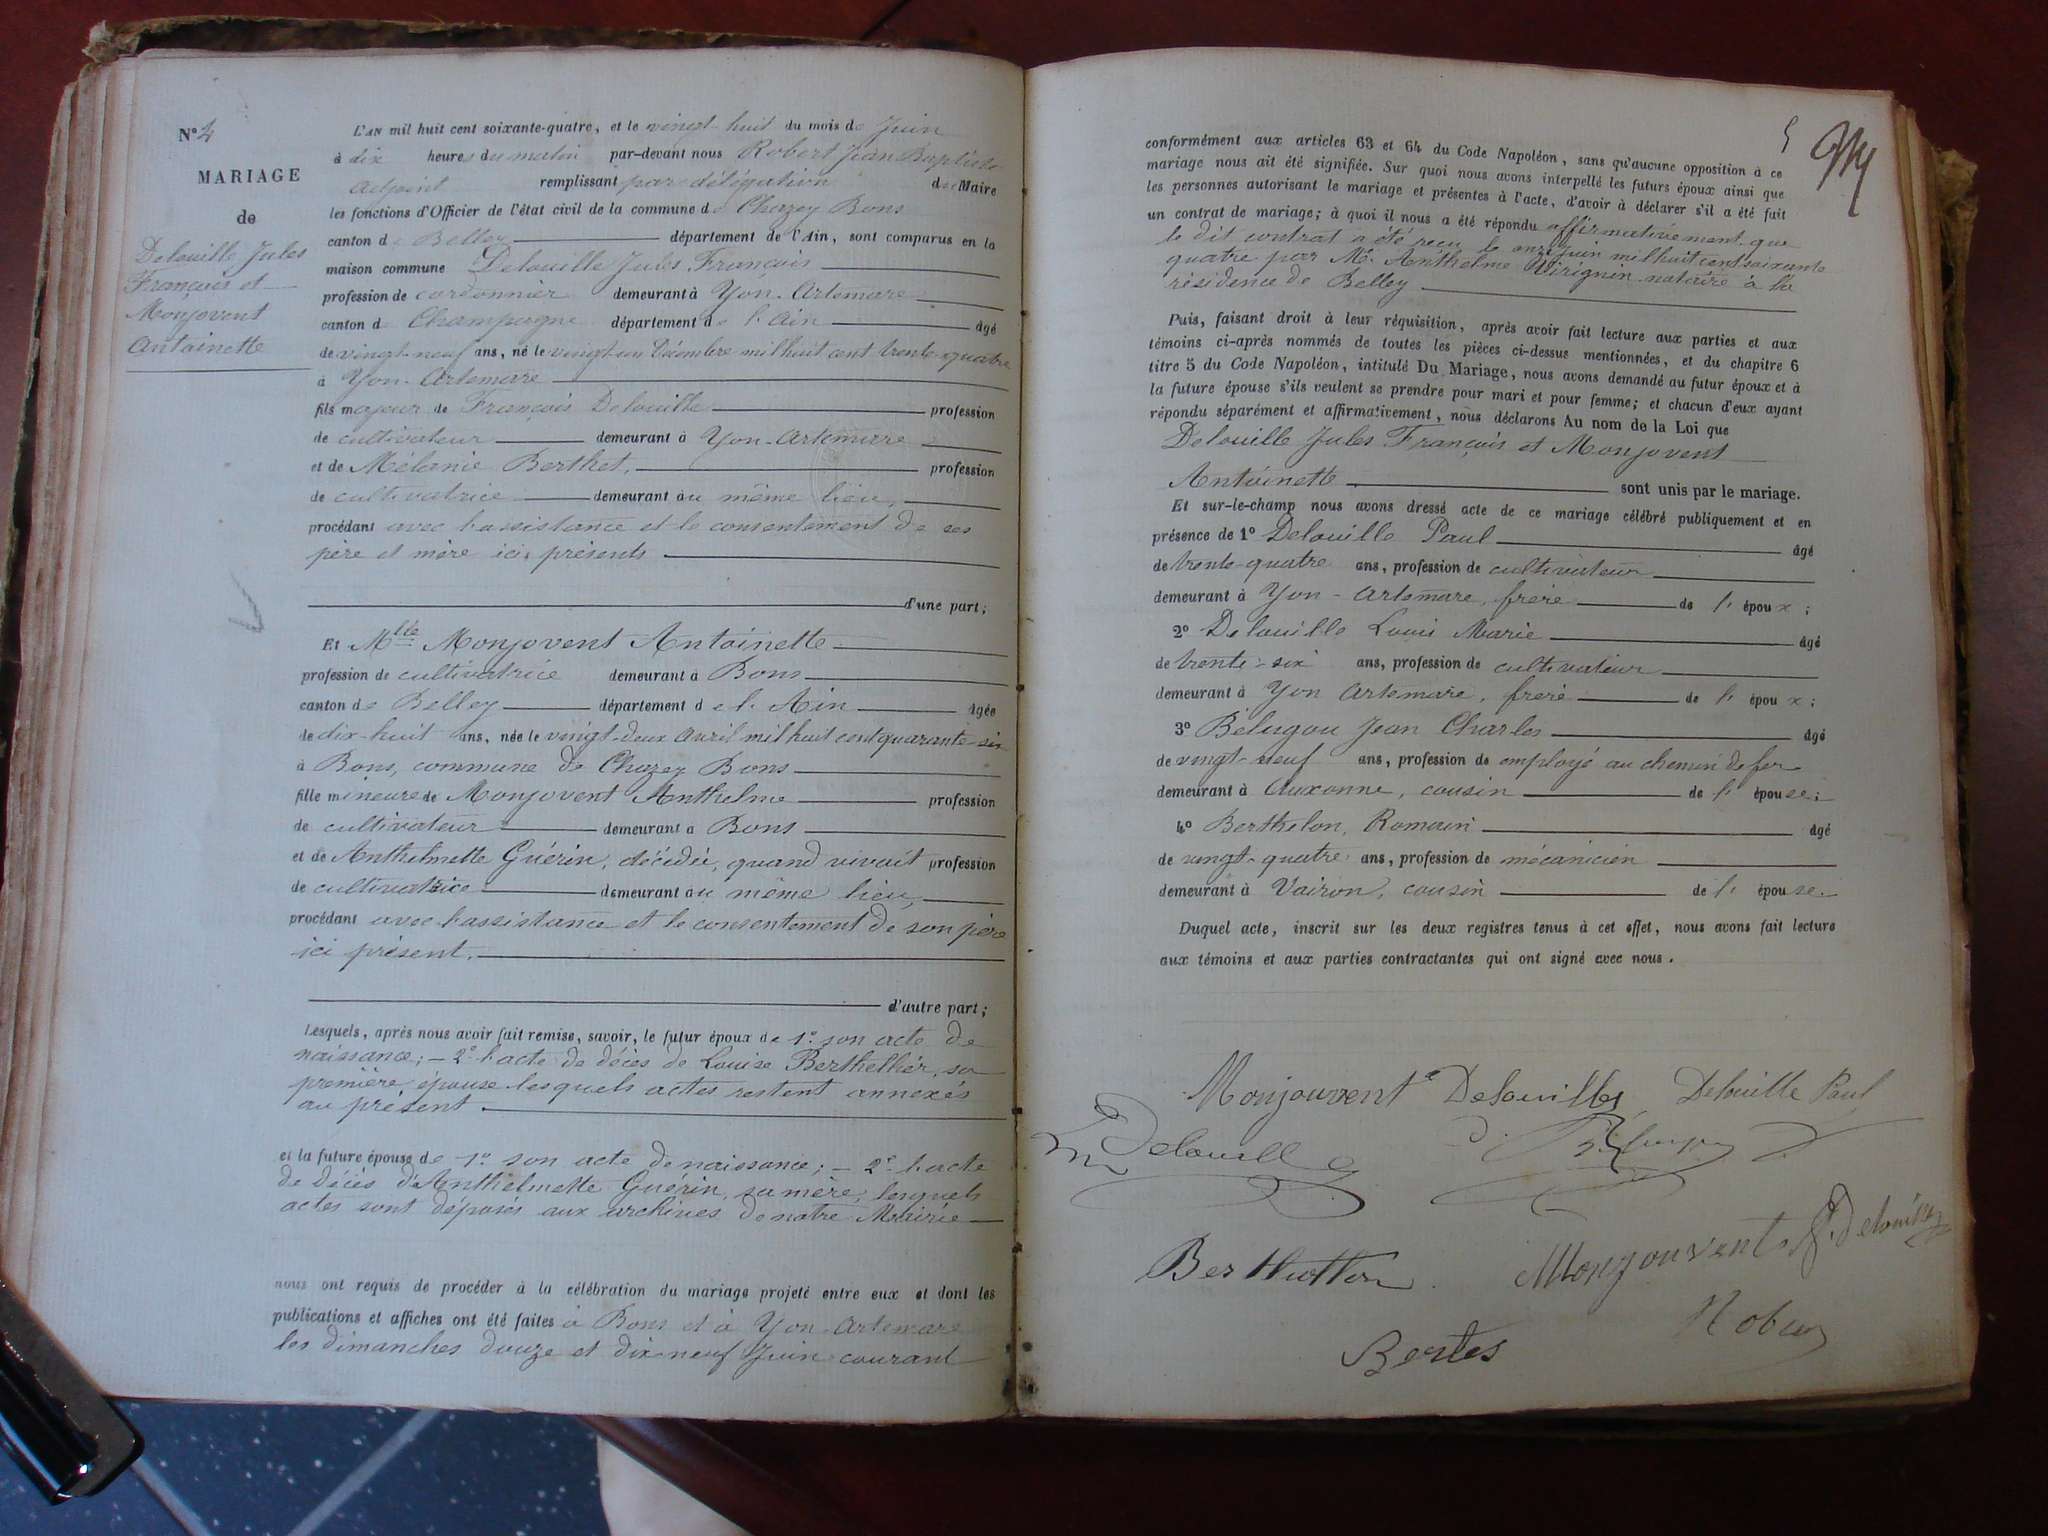 N° 4
MARIAGE
de
Delouille Jules
François et
Monjovent
Antoinette
L'AN mil huit cent soixante-quatre, et le vingt-huit du mois de Juin
à dix heures du matin par-devant nous Robert Jean Baptiste
adjoint remplissant par délégation du Maire
les fonctions d'Officier de l'état civil de la commune de Chazey Bons
canton de Belley département de l'Ain, sont comparus en la
maison commune Delouille Jules François
profession de cordonnier demeurant à Yon-Artemare
canton de Champagne département de l'Ain âgé
de vingt-neuf ans, né le vingt-un Décembre mil huit cent trente-quatre
à Yon-Artemare
fils majeur de François Delouille profession
de cultivateur demeurant à Yon-Artemare
et de Mélanie Berthet, profession
de cultivatrice demeurant au même lieu,
procédant avec l'assistance et le consentement de ses
père et mère ici présents
d'une part;
Et Mlle Monjovent Antoinette
profession de cultivatrice demeurant à Bons
canton de Belley département de l'Ain âgée
de dix-huit ans, née le vingt-deux avril mil huit cent quarante-six
à Bons, commune de Chazey Bons
fille mineure de Monjovent Anthelme profession
de cultivateur demeurant à Bons
et de Anthelmette Guérin, décédée, quand vivait profession
de cultivatrice demeurant au même lieu,
procédant avec l'assistance et le consentement de son père
ici présent.
d'autre part;
Lesquels, après nous avoir fait remise, savoir, le futur époux de 1° son acte de
naissance; - 2° l'acte de décès de Louise Berthelier, sa
première épouse lesquels actes restent annexés
au présent
et la future épouse de 1° son acte de naissance; - 2° l'acte
de décès d'Anthelmette Guérin, sa mère, lesquels
actes sont déposés aux archives de notre Mairie
nous ont requis de procéder à la célébration du mariage projeté entre eux et dont les
publications et affiches ont été faites à Bons et à Yon-Artemare
les dimanches douze et dix-neuf Juin courant
5
conformément aux articles 63 et 64 du Code Napoléon, sans qu'aucune opposition à ce
mariage nous ait été signifiée. Sur quoi nous avons interpellé les futurs époux ainsi que
les personnes autorisant le mariage et présentes à l'acte, d'avoir à déclarer s'il a été fait
un contrat de mariage; à quoi il nous a été répondu affirmativement que
le dit contrat a été reçu le onze Juin mil huit cent soixante
quatre par Me. Anthelme Virignin notaire à la
résidence de Belley
Puis, faisant droit à leur réquisition, après avoir fait lecture aux parties et aux
témoins ci-après nommés de toutes les pièces ci-dessus mentionnées, et du chapitre 6
titre 5 du Code Napoléon, intitulé Du Mariage, nous avons demandé au futur époux et à
la future épouse s'ils veulent se prendre pour mari et pour femme; et chacun d'eux ayant
répondu séparément et affirmativement, nous déclarons Au nom de la Loi que
Delouille Jules François et Monjovent
Antoinette sont unis par le mariage.
Et sur-le-champ nous avons dressé acte de ce mariage célébré publiquement et en
présence de 1° Delouille Paul âgé
de trente-quatre ans, profession de cultivateur
demeurant à Yon-Artemare, frère de l'époux;
2° Delouille Louis Marie âgé
de trente-six ans, profession de cultivateur
demeurant à Yon Artemare, frère de l'époux;
3° Belugou Jean Charles âgé
de vingt-neuf ans, profession de employé au chemin de fer
demeurant à Auxonne, cousin de l'épouse;
4° Berthelon, Romain âgé
de vingt-quatre ans, profession de mécanicien
demeurant à Voiron, cousin de l'épouse.
Duquel acte, inscrit sur les deux registres tenus à cet effet, nous avons fait lecture
aux témoins et aux parties contractantes qui ont signé avec nous.
Monjouvent Delouille Delouille Paul
Delouille
Berthotton Monjouvent Delouille
Robert
Bertes